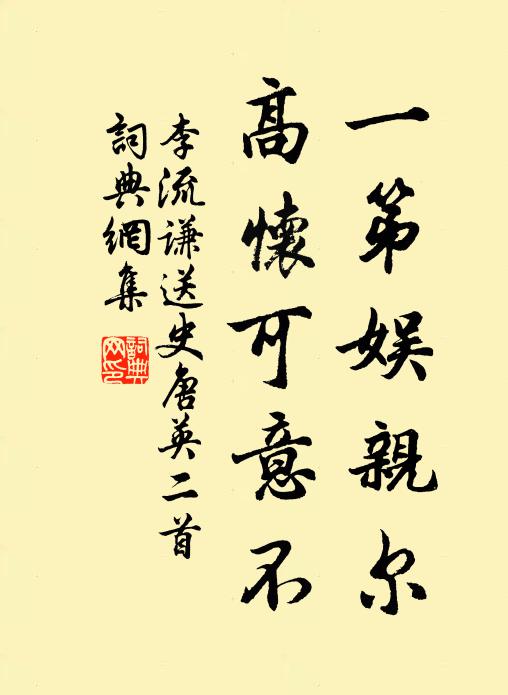 一第娱親尔
高懷可意不
李流謙送史唐英二首
詞典網集
詞典網印